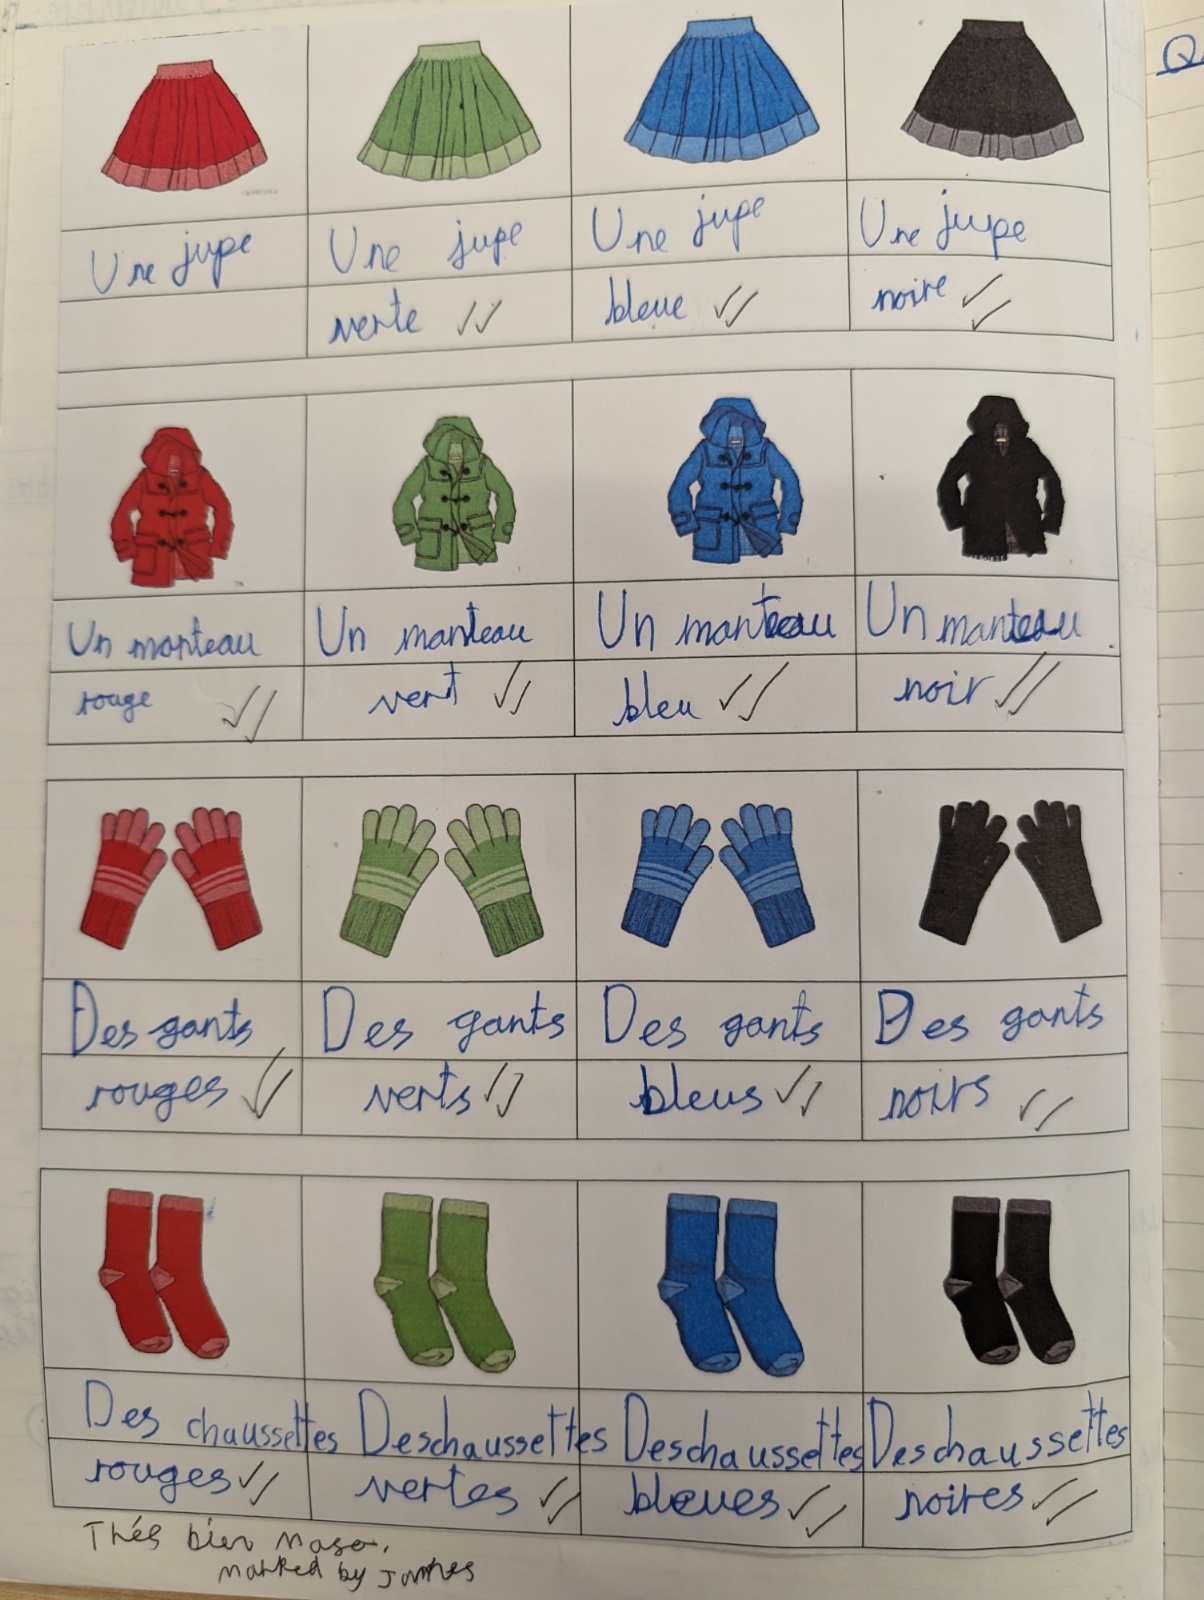 Q
Une jupe
Une jupe
Une jupe
Une jupe
verte
bleue
noire
Un manteau
Un manteau
Un manteau
Un manteau
rouge
vert
bleu
noir
Des gants
Des gants
Des gants
Des gants
rouges
verts
bleus
noirs
Des chaussettes
Deschaussettes
Deschaussettes
Deschaussettes
rouges
vertes
bleues
noires
Thés bien
marked by James